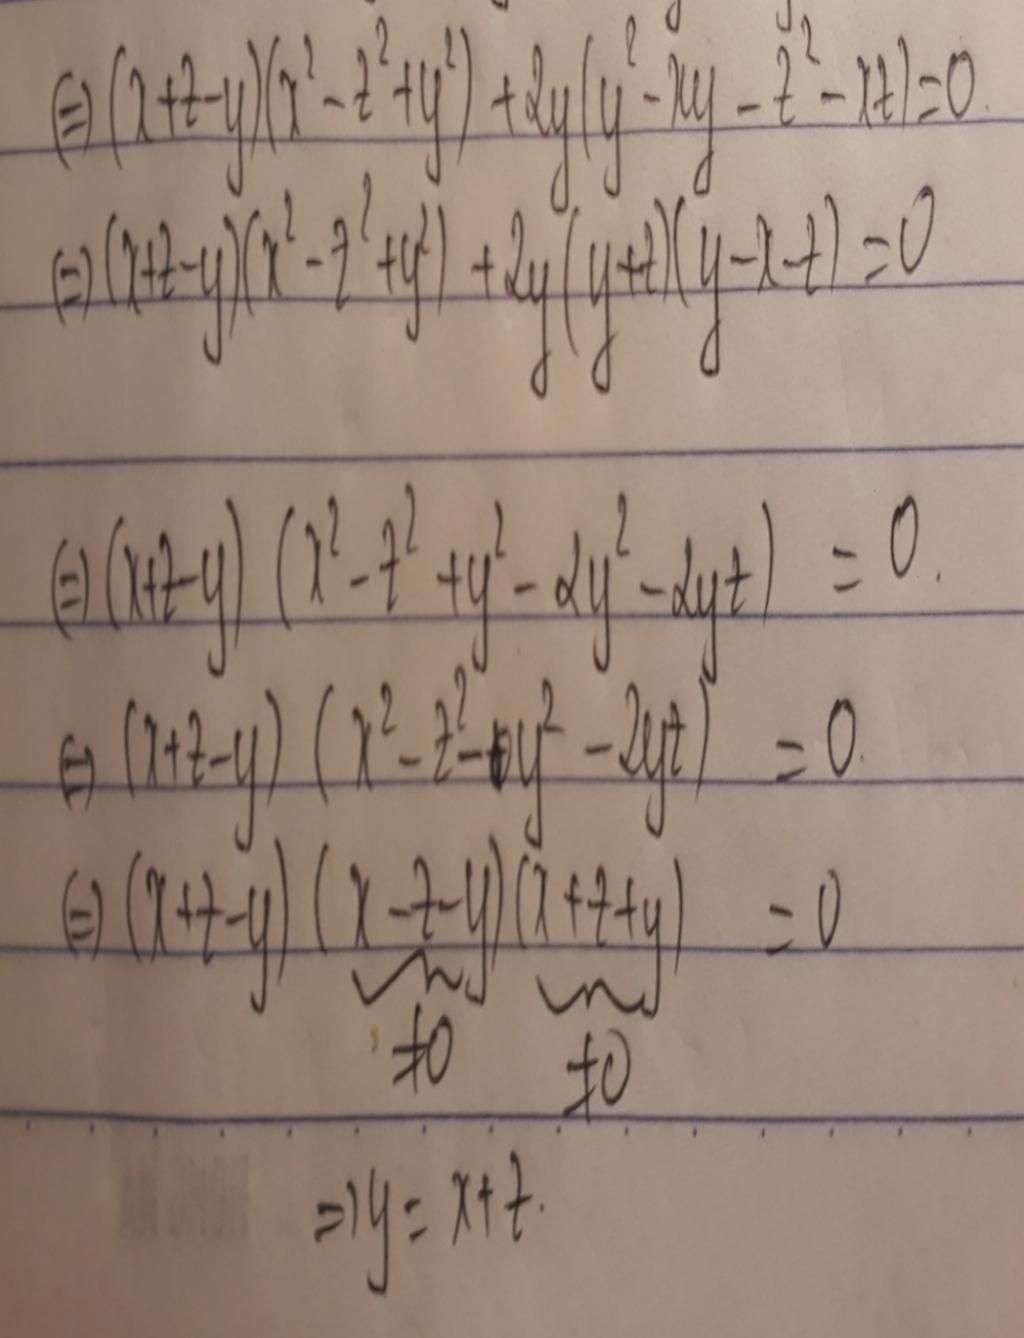 ⇔ (x+z-y)(x² - z² + y²) + 2y(y² - xy - z² - xz) = 0.
⇔ (x+z-y)(x² - z² + y²) + 2y(y+z)(y-x-z) = 0
⇔ (x+z-y) (x² - z² + y² - 2y² - 2yz) = 0.
⇔ (x+z-y) (x² - z² - y² - 2yz) = 0.
⇔ (x+z-y) (x-z-y)(x+z+y) = 0
≠0 ≠0
⇒ y = x+z.